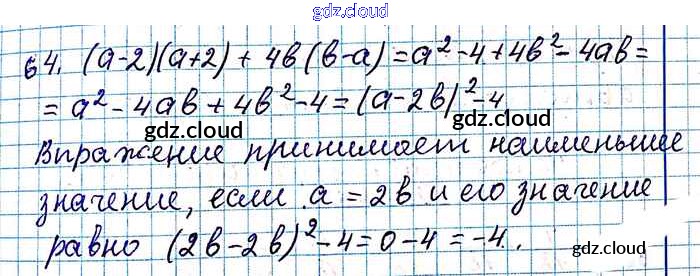 gdz.cloud
64. (a-2)(a+2) + 4b(b-a) = a²-4+4b²-4ab =
= a²-4ab+4b²-4 = (a-2b)²-4
gdz.cloud gdz.cloud
Выражение принимает наименьшее
значение, если a = 2b и его значение
равно (2b-2b)²-4=0-4 = -4.
gdz.cloud gdz.cloud